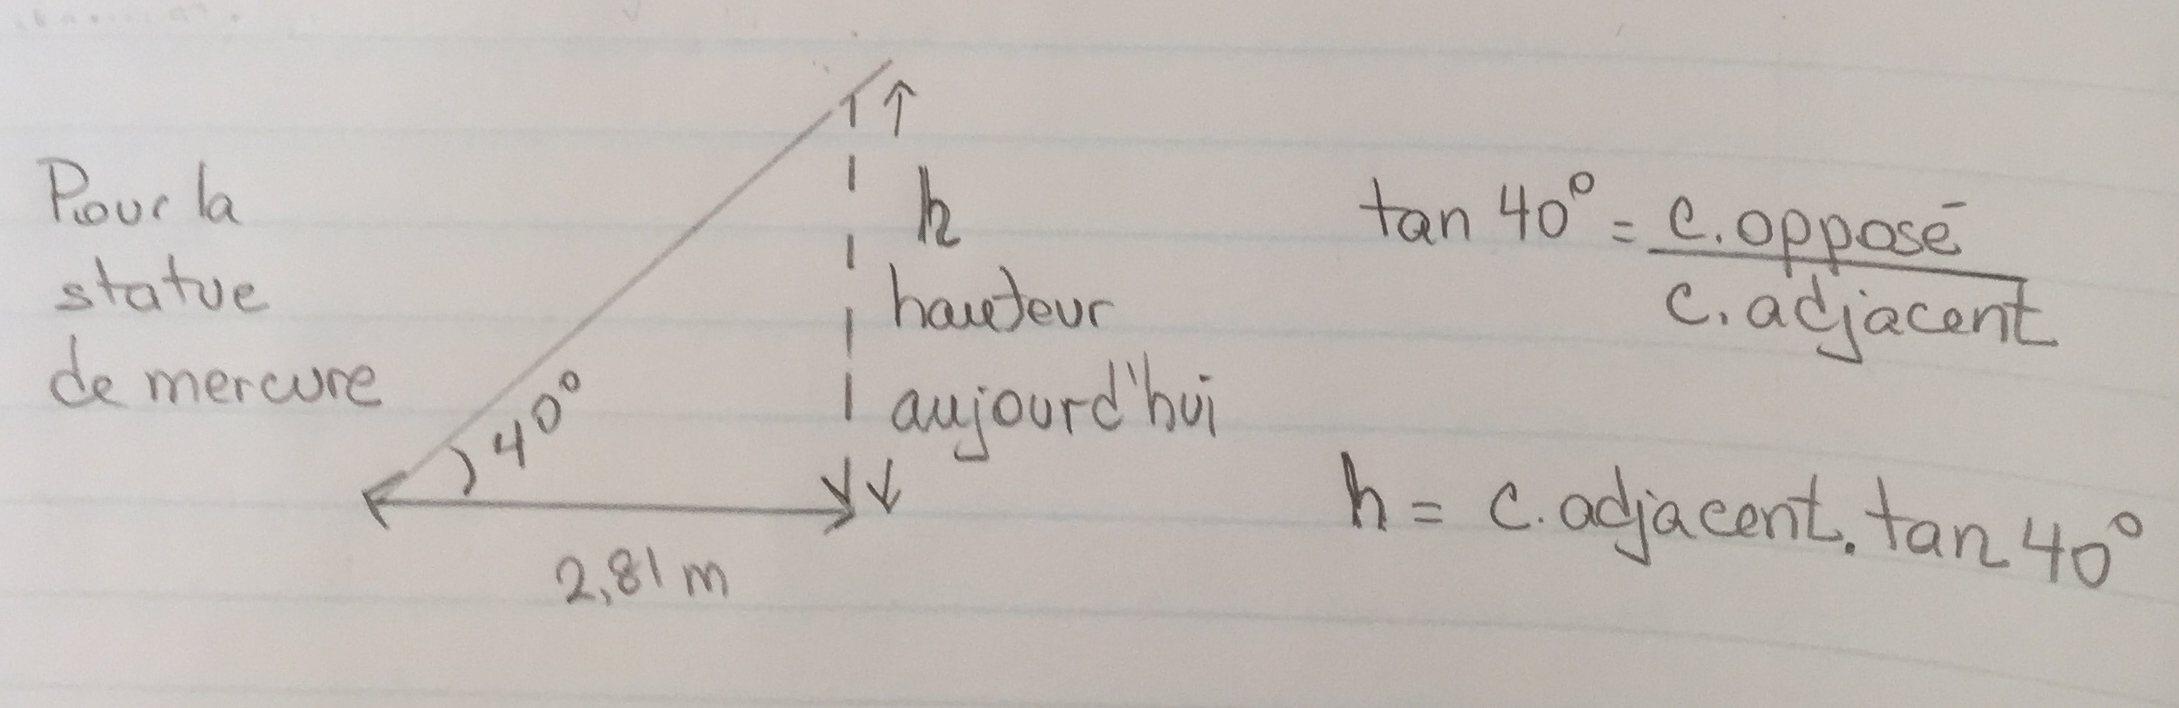 Pour la
statue
de mercure
40°
2,81 m
h
hauteur
aujourd'hui
tan 40° = c. opposé
c. adjacent
h = c. adjacent . tan 40°